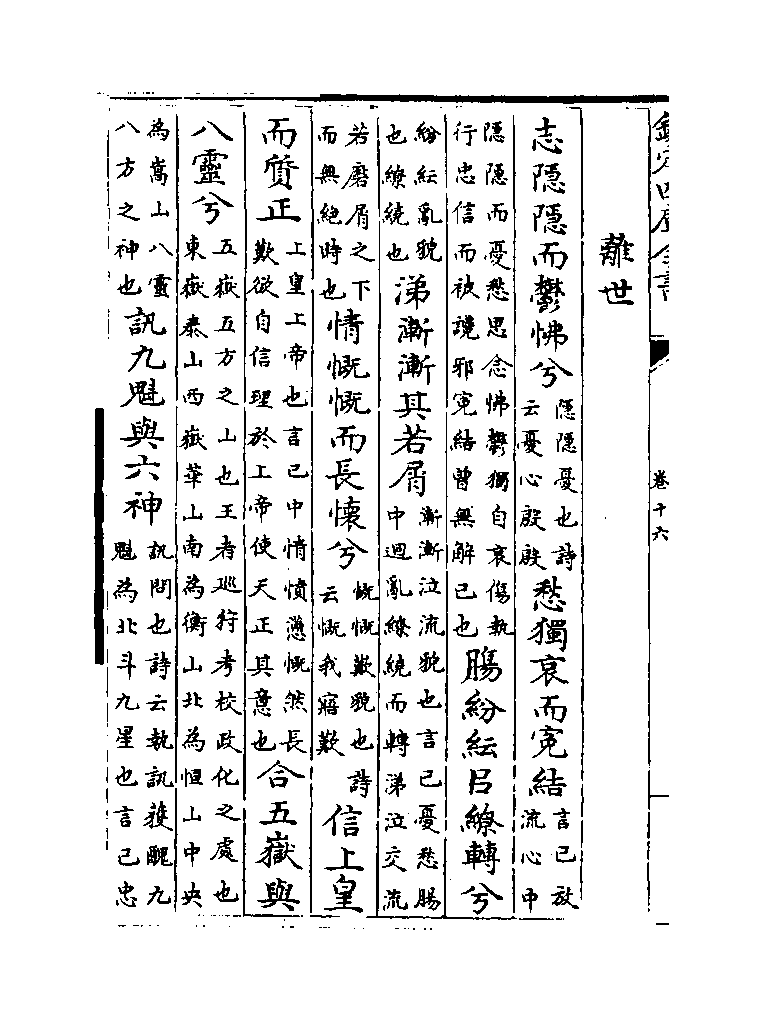 欽定四庫全書
卷十六
離世
志隱隱而鬱怫兮隱隱憂也詩云憂心殷殷愁獨哀而寃結言己放流心中
隱隱而憂愁思念怫鬱獨自哀傷執行忠信而被讒邪寃結曾無解已也腸紛紜㠯繚轉兮
紛紜亂貌也繚繞也涕漸漸其若屑漸漸泣流貌也言己憂愁腸中迴亂繚繞而轉涕泣交流
若磨屑之下而無絶時也情慨慨而長懷兮慨慨歎貌也詩云慨我寤歎信上皇
而質正上皇上帝也言己中情憤懣慨然長歎欲自信理於上帝使天正其意也合五嶽與
八靈兮五嶽五方之山也王者巡狩考校政化之處也東嶽泰山西嶽華山南為衡山北為恒山中央
為嵩山八靈八方之神也訊九鬿與六神訊問也詩云執訊獲醜九鬿為北斗九星也言己忠